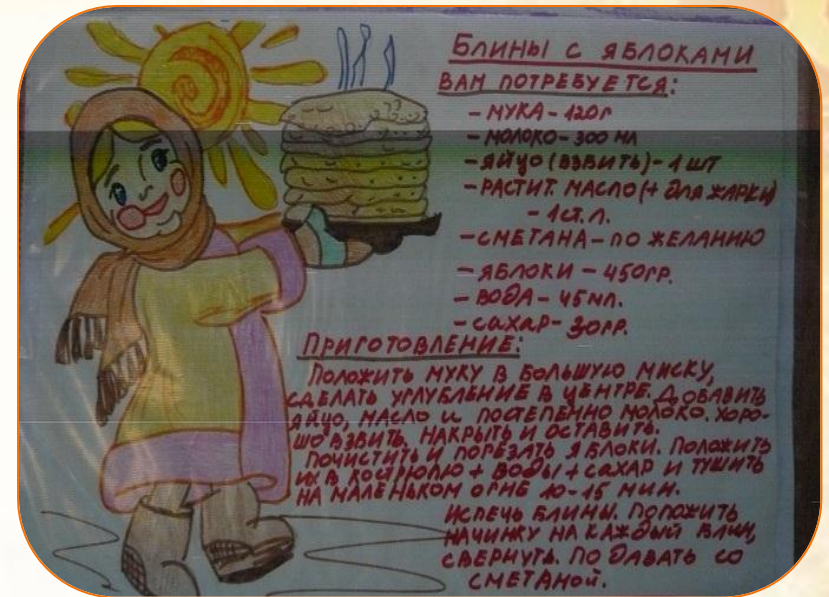 БЛИНЫ С ЯБЛОКАМИ
ВАМ ПОТРЕБУЕТСЯ:
- МУКА - 120г
- МОЛОКО - 300 МЛ
- ЯЙЦО (ВЗБИТЬ) - 1 ШТ
- РАСТИТ. МАСЛО (+ ДЛЯ ЖАРКИ)
- 1 СТ. Л.
- СМЕТАНА - ПО ЖЕЛАНИЮ
- ЯБЛОКИ - 450ГР.
- ВОДА - 45 МЛ.
- САХАР - 30ГР.
ПРИГОТОВЛЕНИЕ:
ПОЛОЖИТЬ МУКУ В БОЛЬШУЮ МИСКУ,
СДЕЛАТЬ УГЛУБЛЕНИЕ В ЦЕНТРЕ. ДОБАВИТЬ
ЯЙЦО, МАСЛО И ПОСТЕПЕННО МОЛОКО. ХОРО-
ШО ВЗБИТЬ. НАКРЫТЬ И ОСТАВИТЬ.
ПОЧИСТИТЬ И ПОРЕЗАТЬ ЯБЛОКИ. ПОЛОЖИТЬ
ИХ В КОСТРЮЛЮ + ВОДЫ + САХАР И ТУШИТЬ
НА МАЛЕНЬКОМ ОГНЕ 10-15 МИН.
ИСПЕЧЬ БЛИНЫ. ПОЛОЖИТЬ
НАЧИНКУ НА КАЖДЫЙ БЛИН,
СВЕРНУТЬ. ПОДАВАТЬ СО
СМЕТАНОЙ.